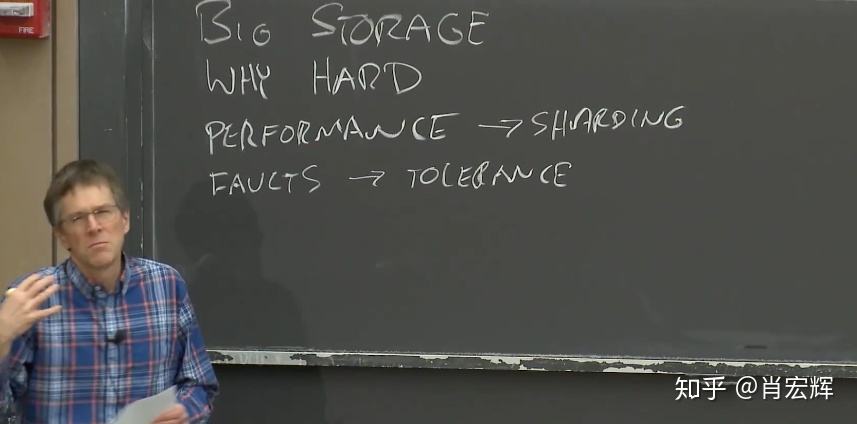 FIRE
BIG STORAGE
WHY HARD
PERFORMANCE → SHARDING
FAULTS → TOLERANCE
知乎 @肖宏辉